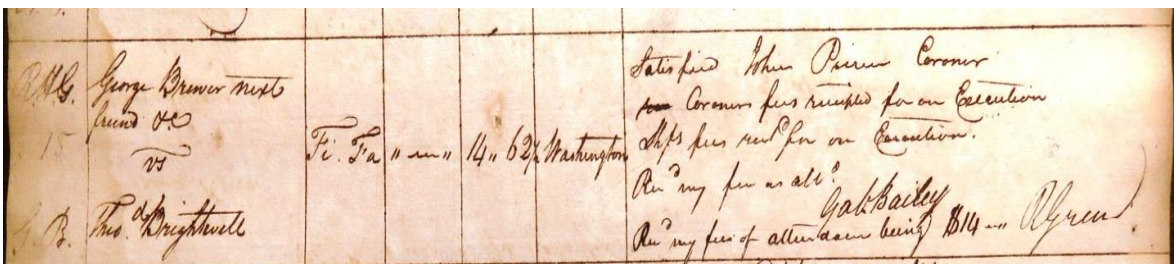 R.H.G.
15
G. B.
George Brewer next
friend &c
vs
Thos. Brightwell
Fi. Fa
" — "
14 " 62½
Washington
Satisfied John Coroner
Coroners fees receipted for on Execution
Shffs fees recd for on Execution.
Recd my fee as atty.
Gab Bailey
Recd my fees of attendance being $14 —